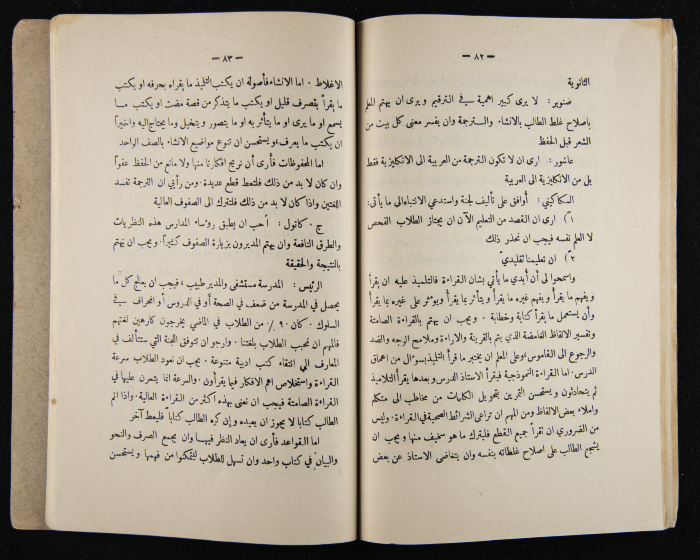 — ٨٢ —
الثانوية
صنوبر : لا يرى كبير اهمية في الترقيم ويرى ان يهتم المعلم
باصلاح غلط الطالب بالانشاء والترجمة وان يفسر معنى كل بيت من
الشعر قبل الحفظ
عاشور : ارى ان لا تكون الترجمة من العربية الى الانكليزية فقط
بل من الانكليزية الى العربية
السكاكيني : أوافق على تأليف لجنة واستدعي الانتباه الى ما يأتي :
١ً) ارى ان القصد من التعليم الآن ان يجتاز الطلاب الفحص
لا العلم نفسه فيجب ان نحذر ذلك
٢ً) ان تعليمنا تقليدي
واسمحوا لى أن أبدي ما يأتي بشان القراءة فالتلميذ عليه ان يقرأ
ويفهم ما يقرأ ويفهم غيره ما يقرأ ويتأثر بما يقرأ ويوثر على غيره بما يقرأ
وأن يستعمل ما يقرأ كتابة وخطابة . ويجب ان يهتم بالقراءة الصامتة
وتفسير الالفاظ الغامضة الذي يتم بالقرينة والاراءة وملامح الوجه والضد
والرجوع الى القاموس، وعلى المعلم ان يختبر ما قرأ التلميذ بسوال عن اعماق
الدرس . اما القراءة النموذجية فيقرأ الاستاذ الدرس وبعدها يقرأ التلاميذ
ثم يتحادثون ويستحسن التمرين بتحويل الكلمات من مخاطب الى متكلم
واملاء بعض الالفاظ ومن المهم ان تراعى الشرائط الصحية في القراءة . وليس
من الضروري ان تقرأ جميع القطع فليترك ما هو سخيف منها ويجب ان
يشجع الطالب على اصلاح غلطاته بنفسه وان يتغاضى الاستاذ عن بعض
— ٨٣ —
الاغلاط . اما الانشاء فأصوله ان يكتب التلميذ ما يقراه بحرفه او يكتب
ما يقرأ بتصرف قليل او يكتب ما يتذكر من قصة مضت او يكتب ما
يسمع او ما يرى او ما يتأثر به او ما يتصور ويتخيل وما يحتاج اليه واخيراً
ان يكتب ما يعرف، ويستحسن ان تنوع مواضيع الانشاء بالصف الواحد
اما المحفوظات فأرى أن نريح افكارنا منها ولا مانع من الحفظ عفواً
وان كان لا بد من ذلك فلتعط قطع عديدة . ومن رأيي ان الترجمة تفسد
اللغتين واذا كان لا بد من ذلك فلتترك الى الصفوف العالية
ج . كاتول : أحب ان يطبق رؤساء المدارس هذه النظريات
والطرق النافعة وان يهتم المديرون بزيارة الصفوف كثيراً . ويجب ان يهتم
بالنتيجة والحقيقة
الرئيس : المدرسة مستشفى والمدير طبيب ، فيجب ان يعالج كل ما
يحصل في المدرسة من ضعف في الصحة أو في الدروس أو انحراف في
السلوك . كان ٩٠ ٪ من الطلاب في الماضي يتخرجون كارهين لغتهم
فالمهم ان نحبب الطلاب بلغتنا . وارجو ان توفق اللجنة التي ستتألف في
المعارف الى انتقاء كتب ادبية متنوعة . يجب ان نعود الطلاب سرعة
القراءة واستخلاص اهم الافكار فيما يقرأون . والسرعة انما يتمرن عليها في
القراءة الصامتة فيجب ان نعنى بهذه اكثر من القراءة العالية . واذا اتم
الطالب كتابا لا يجوز ان يعيده وإن كره الطالب كتابا فليعط آخر
اما القواعد فأرى ان يعاد النظر فيها وان يجمع الصرف والنحو
والبيان في كتاب واحد وان تسهل للطلاب ليتمكنوا من فهمها ويستحسن